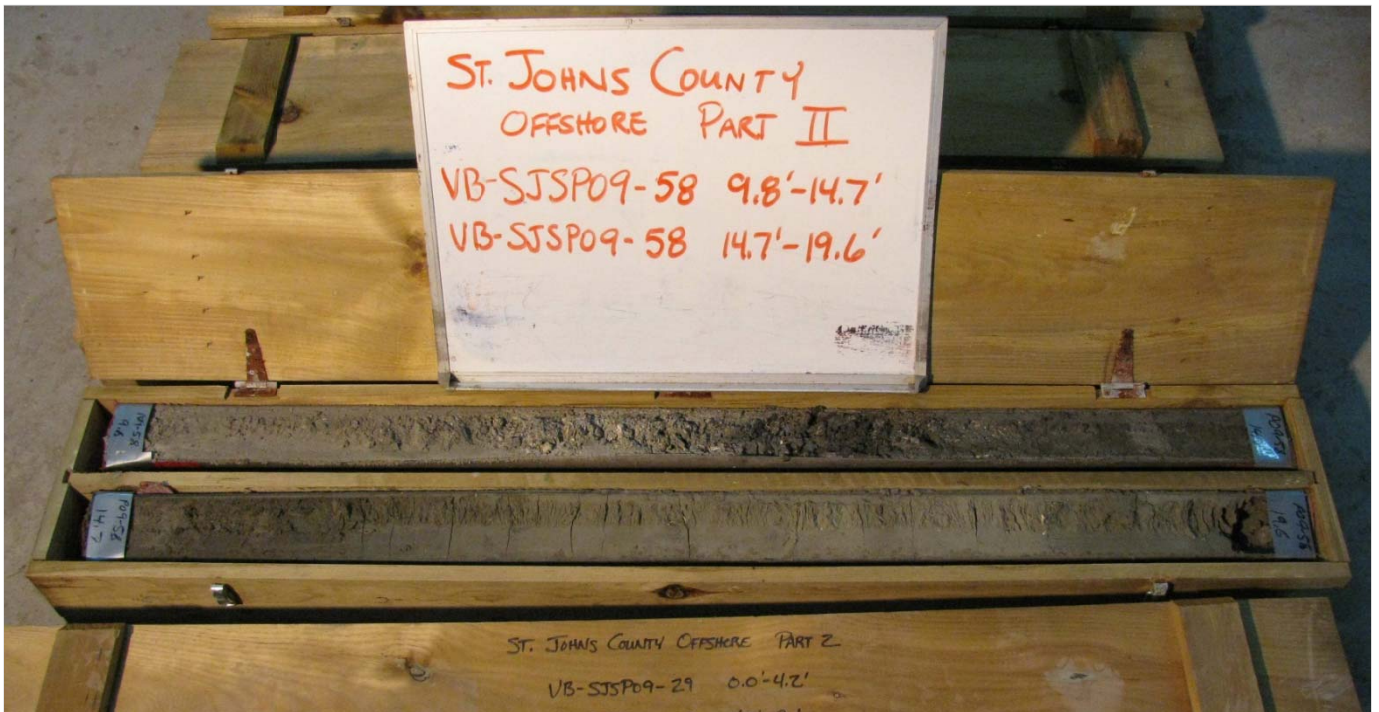 ST. JOHNS COUNTY
OFFSHORE PART II
VB-SJSP09-58 9.8'-14.7'
VB-SJSP09-58 14.7'-19.6'
P09-58
9.8
P09-58
14.7
P09-58
19.6
ST. JOHNS COUNTY OFFSHORE PART 2
VB-SJSP09-29 0.0'-4.2'